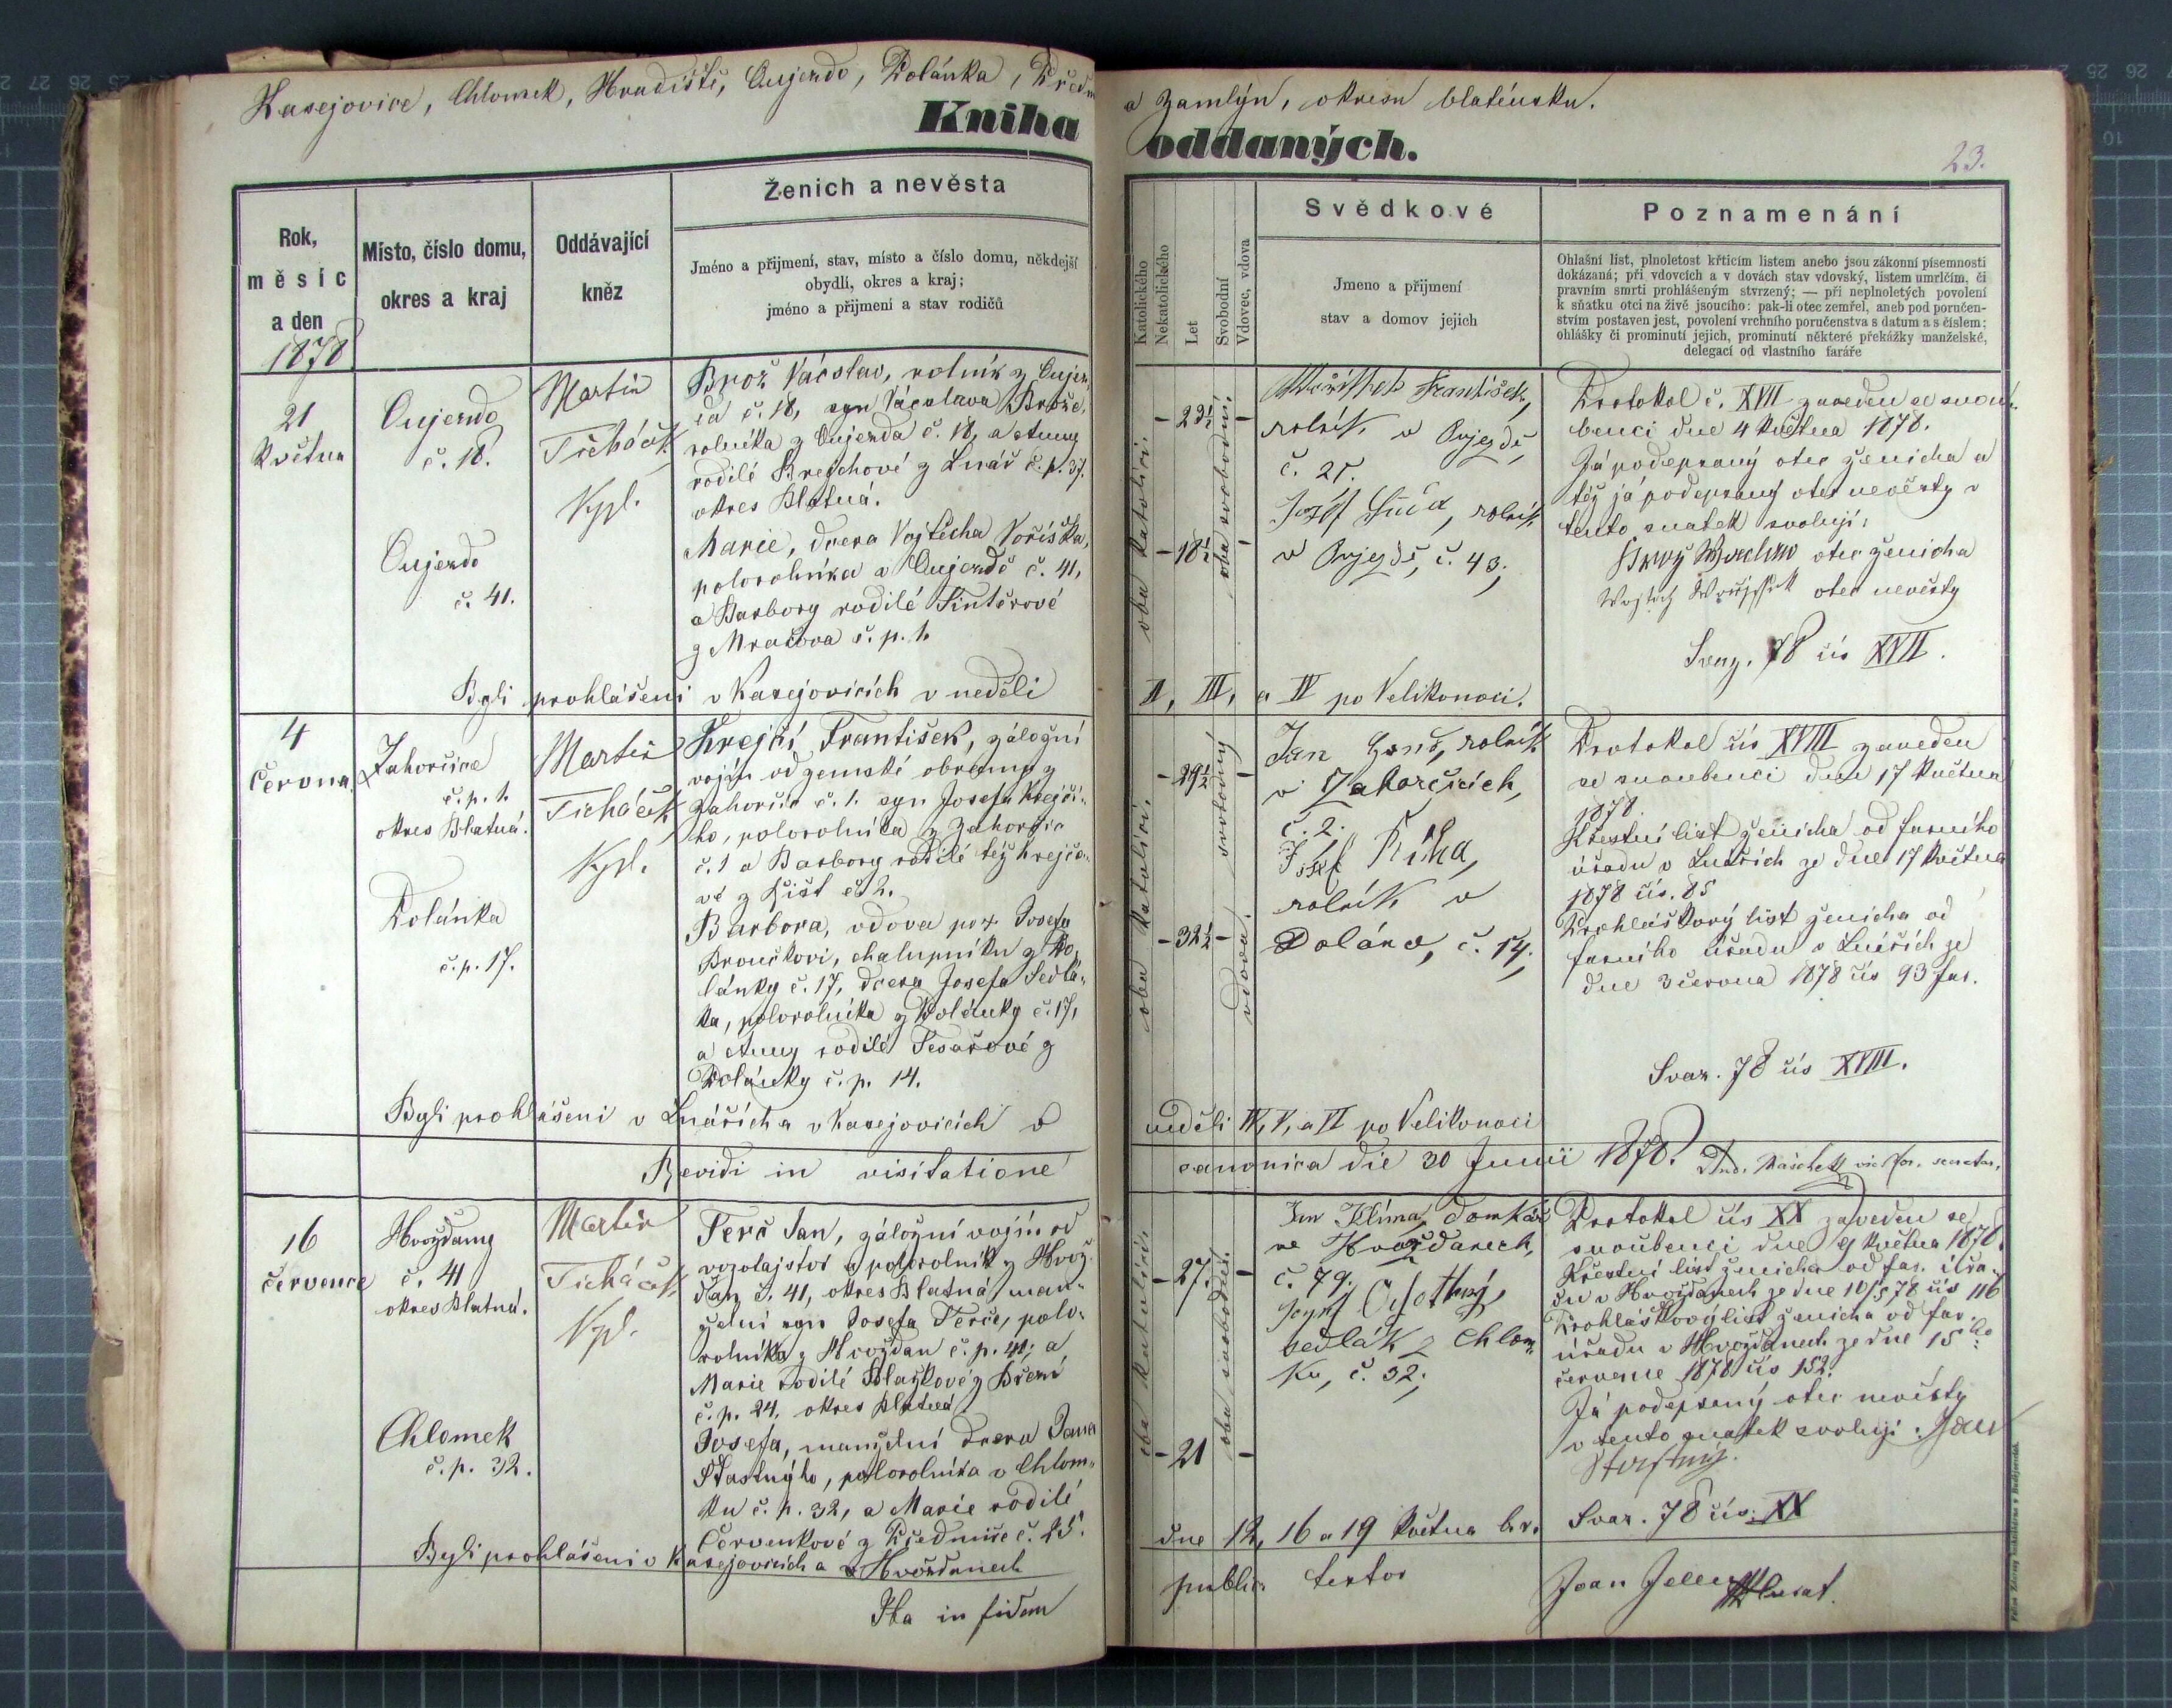 Kasejovice, Chlomek, Hradiště, Oujezdo, Polánka, Předm
a Zamlýn, okresu blatensku.
Kniha
oddaných.
23.
Rok,
měsíc
a den
1878
Místo, číslo domu,
okres a kraj
Oddávající
kněz
Ženich a nevěsta
Jméno a přijmení, stav, místo a číslo domu, někdejší
obydlí, okres a kraj;
jméno a přijmení a stav rodičů
Katolického
Nekatolického
Let
Svobodní
Vdovec, vdova
Svědkové
Jmeno a přijmení
stav a domov jejich
Poznamenání
Ohlašní list, plnoletost křticím listem anebo jsou zákonní písemnosti
dokázaná; při vdovcích a v dovách stav vdovský, listem umrlčím, či
pravním smrti prohlášeným stvrzený; — při neplnoletých povolení
k sňatku otci na živě jsoucího: pak-li otec zemřel, aneb pod poručen-
stvím postaven jest, povolení vrchního poručenstva s datum a s číslem;
ohlášky či prominutí jejich, prominutí některé překážky manželské,
delegací od vlastního faráře
21
Května
Oujezdo
č. 18.
Oujezdo
č. 41.
Martin
Ticháček
Kpl.
Brož Václav, rolník z Oujez,
da č. 18, syn Václava Brože,
rolníka z Oujezda č. 18, a Anny
rodilé Brejchové z Lnář č. p. 37.
okres Blatná.
Marie, dcera Vojtěcha Voříška,
polorolníka v Oujezdě č. 41,
a Barbory rodilé Sintérové
z Mračova č. p. 1.
oba katolíci.
- 23½ -
- 18½ -
oba svobodní.
František,
rolník v Oujezdě,
č. 25.
Josef, rolník
v Oujezdě, č. 43.
Protokol č. XVII zaveden se snou-
benci dne 4 Května 1878.
Já podepsaný otec ženicha a
též já podepsaný otec nevěsty v
tento snatek svolují:
Brož otec ženicha
otec nevěsty
Svaz. 78 čís XVII.
Byli prohlášeni v Kasejovicích v neděli
II, III, a IV po Velikonoci.
4
Června
Zahorčice
č. p. 1.
okres Blatná.
Polánka
č. p. 17.
Martin
Ticháček
Kpl.
Krejčí František, záložní
vojín od zemské obrany z
Zahorčic č. 1. syn Josefa Krejčí-
ho, polorolníka z Zahorčic
č. 1 a Barbory rodilé též Krejčo-
vé z Kišt č. 2.
Barbora, vdova poz. Josefu
Broučkovi, chalupníku z Po-
lánky č. 17, dcera Josefa Sedlá-
ka, polorolníka z Polánky č. 17,
a Anny rodilé Tesařové z
Polánky č. p. 14.
oba katolíci.
- 29½ -
- 32½ -
svobodný
vdova.
Jan, rolník
v Zahorčicích,
č. 2.
Josef Říha,
rolník v
Poláno, č. 14.
Protokol čís XVIII zaveden
se snoubenci dne 17 Května
1878.
Křestní list ženicha od farního
úřadu v Lnářích ze dne 17 Května
1878 čís. 85
Prohláškový list ženicha od
farního úřadu v Lnářích ze
dne 3 června 1878 čís 93 far.
Svaz. 78 čís XVIII.
Byli prohlášeni v Lnářích a v Kasejovicích v
neděli IV, V, a VI po Velikonoci
Revidi in visitatione
canonica die 30 Junii 1878.
16
července
Hvožďany
č. 41
okres Blatná.
Chlomek
č. p. 32.
Martin
Ticháček
Kpl.
Terč Jan, záložní vojín od
vozotajstva a polorolník z Hvož-
ďan č. 41, okres Blatná, man-
želní syn Josefa Terče, polo-
rolníka z Hvožďan č. p. 41, a
Marie rodilé Blažkové z Březí
č. p. 24. okres Blatná
Josefa, manželní dcera Jana
Šťastnýho, polorolníka v Chlom-
ku č. p. 32, a Marie rodilé
Červenkové z Předmíře č. 25.
oba katolíci.
- 27 -
- 21 -
oba svobodní.
Jan Klíma, domkář
ve Hvožďanech,
č. 79.
Josef
sedlák z Chlom-
ku, č. 32.
Protokol čís XX zaveden se
snoubenci dne 9 Května 1878.
Křestní list ženicha od far. úřa-
du v Hvožďanech ze dne 10/5 78 čís 116
Prohláškový list ženicha od far.
úřadu v Hvožďanech ze dne 15ho
července 1878 čís 152.
Já podepsaný otec nevěsty
v tento snatek svoluji. Jan
Šťastný.
Svaz. 78 čís. XX
Byli prohlášeni v Kasejovicích a v Hvožďanech
dne 12, 16 a 19 Května b. r.
Ita in fidem
public. testor